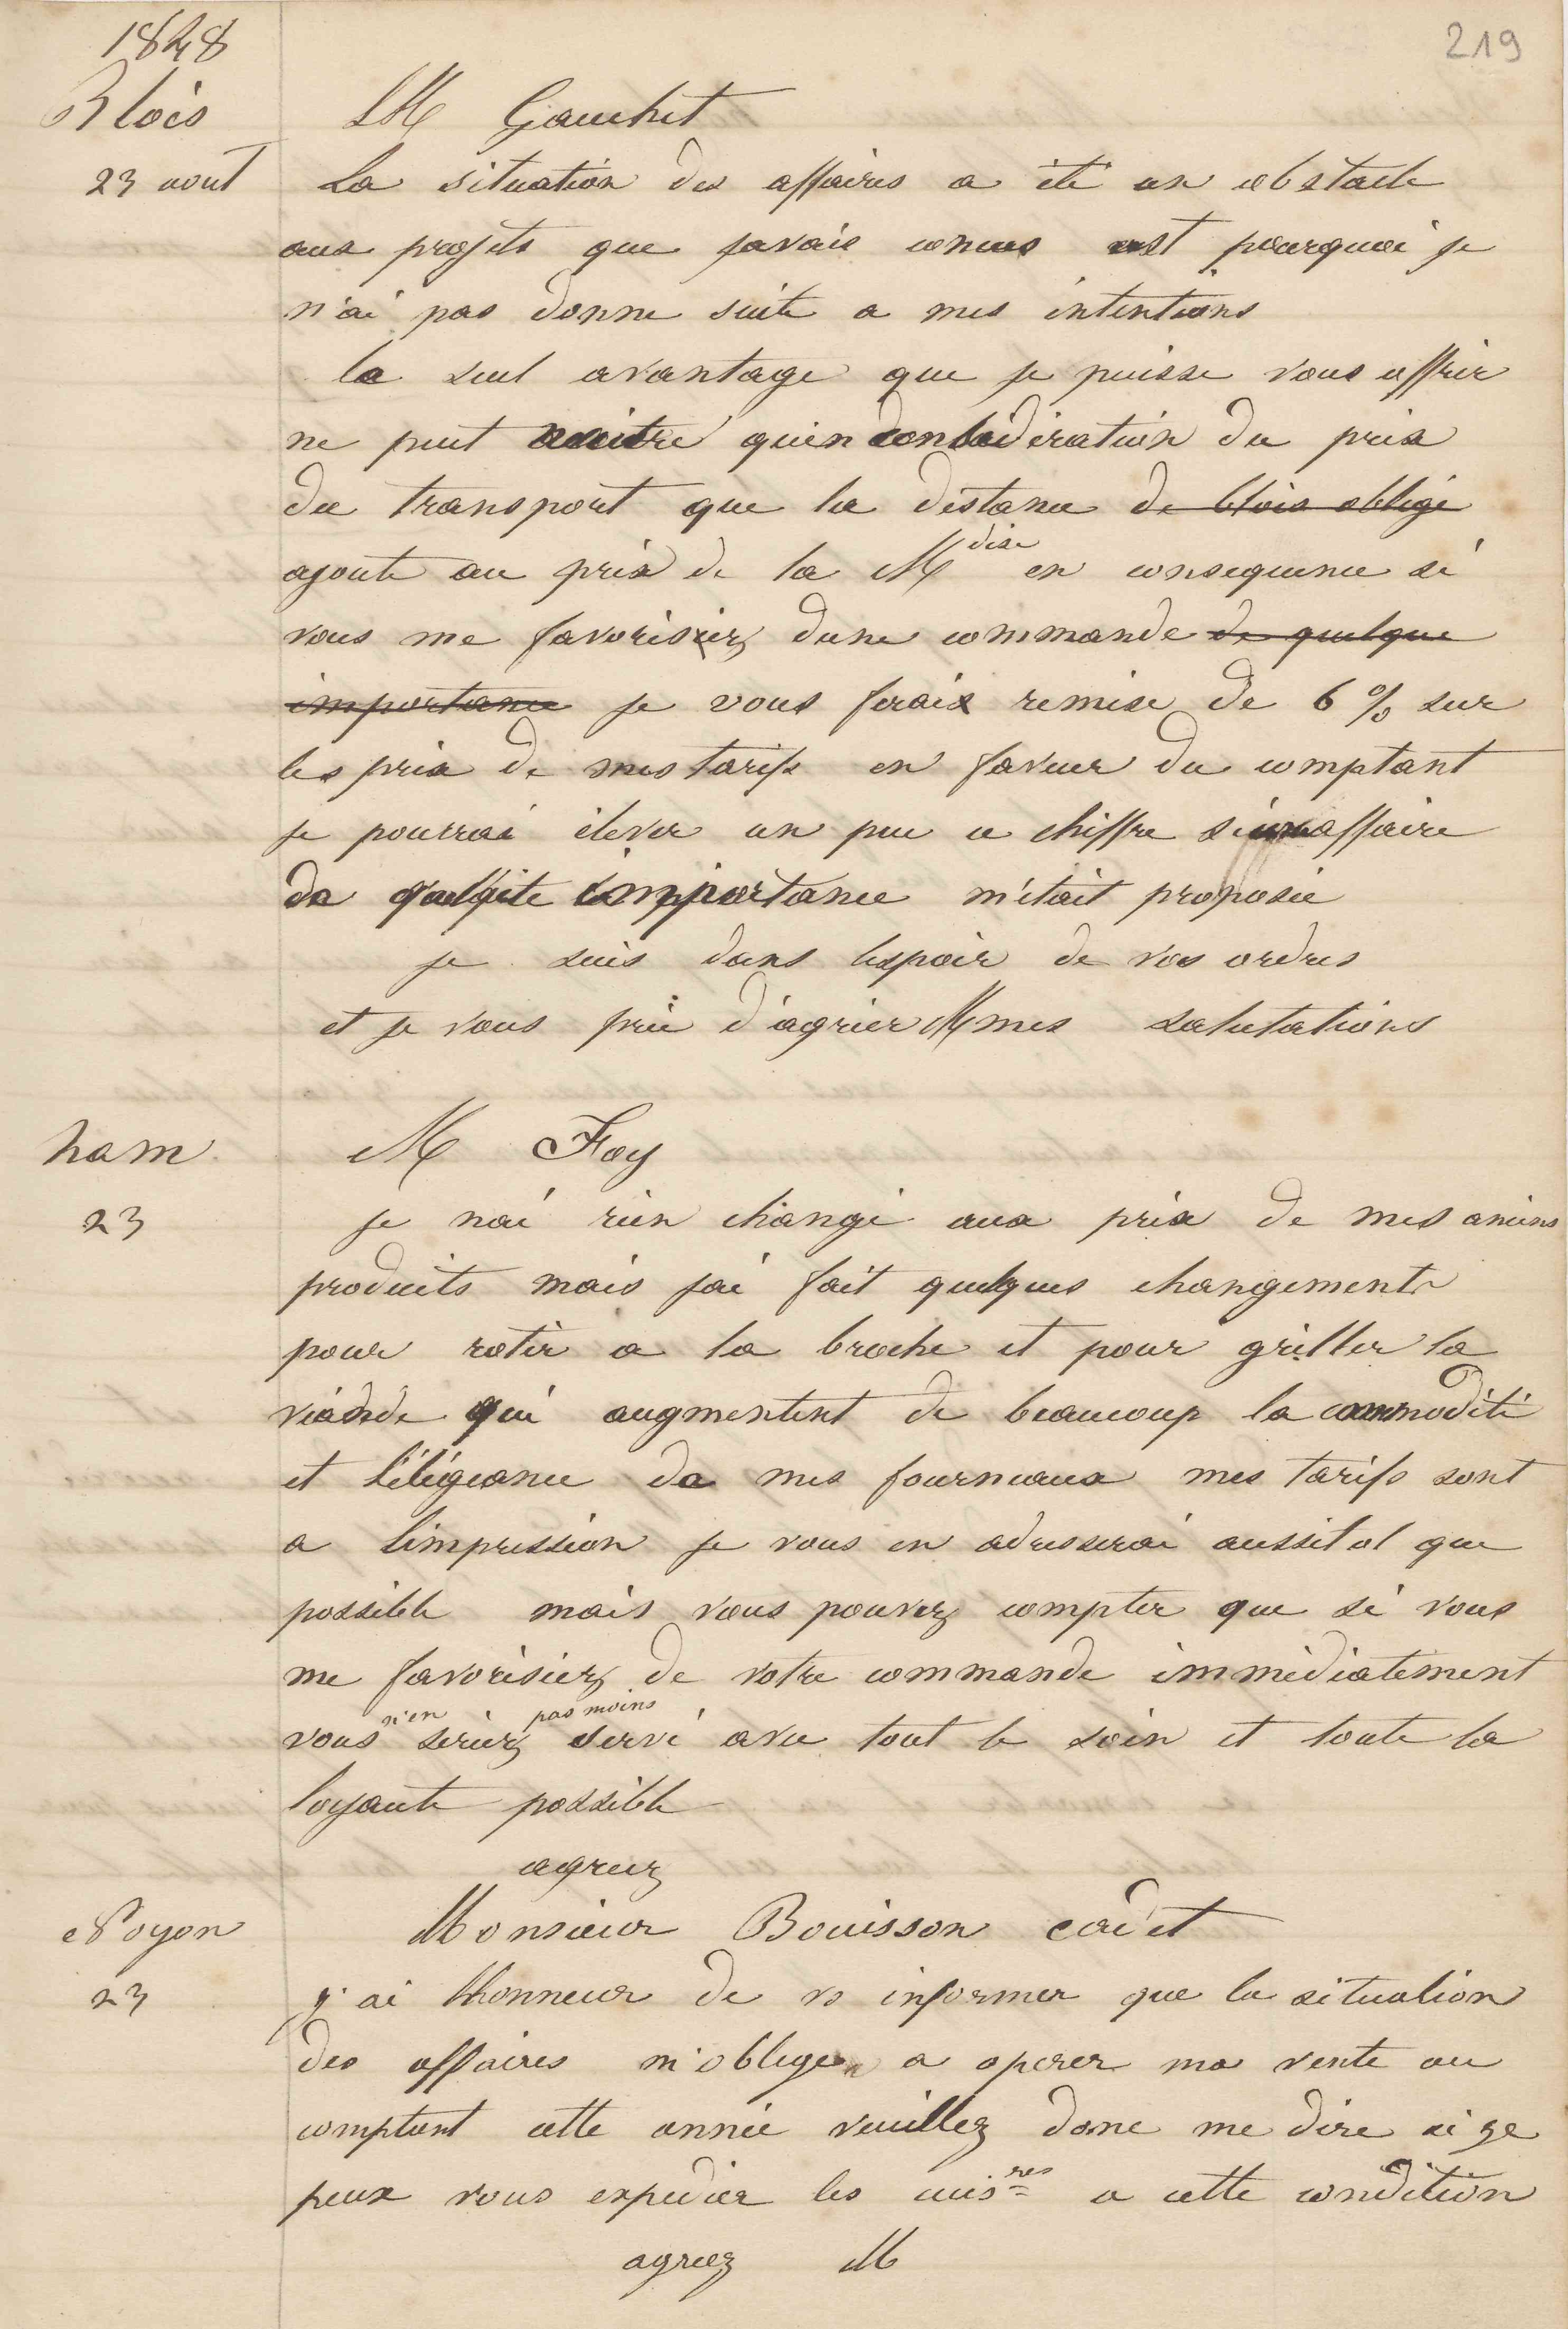 1848
219
Blois
M Gauchet
23 aout
La situation des affaires a été un obstacle
aux projets que javais concus cest pourquoi je
n'ai pas donne suite a mes intentions
le seul avantage que je puisse vous offrir
ne peut naitre qu'en consideration du prix
du transport que la distance de blois obligé
ajoute au prix de la M dise en consequence si
vous me favorisiez dune commande de quelque
importance je vous ferais remise de 6 % sur
les prix de mes tarifs en faveur du comptant
je pourrai élever un peu ce chiffre si une affaire
de quelque importance m'était proposée
je suis dans lespoir de vos ordres
et je vous prie d'agréer M mes salutations
ham
M Foy
23
je nai rien changé aux prix de mes anciens
produits mais jai fait quelques changements
pour rotir a la broche et pour griller la
viande qui augmentent de beaucoup la commodité
et lélégeance de mes fourneaux mes tarifs sont
a limpression je vous en adresserai aussitot que
possible mais vous pouvez compter que si vous
me favorisiez de votre commande immédiatement
vous n'en seriez pas moins servi avec tout le soin et toute la
loyaute possible
agreez
Noyon
Monsieur Bouisson cadet
23
j'ai lhonneur de vs informer que la situation
des affaires m'oblige a operer ma vente au
comptant cette année veuillez donc me dire si je
peux vous expedier les cuis res a cette condition
agreez M